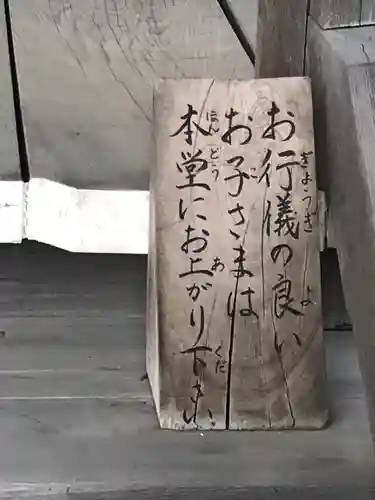 お行儀の良い
お子さまは
本堂にお上がり下さい
ぎょうぎ
よ
こ
ほんどう
あ
くだ